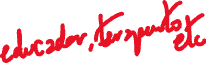 educador, terapeuta,
etc